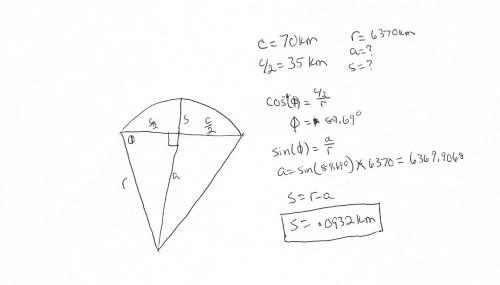 c = 70km
r = 6370km
c/2 = 35 km
a = ?
s = ?
cos(φ) = c/2 / r
φ = 89.69°
sin(φ) = a/r
a = sin(89.69°) × 6370 = 6369.9068
s = r-a
s = .0932 km
c/2
s
c/2
φ
r
a